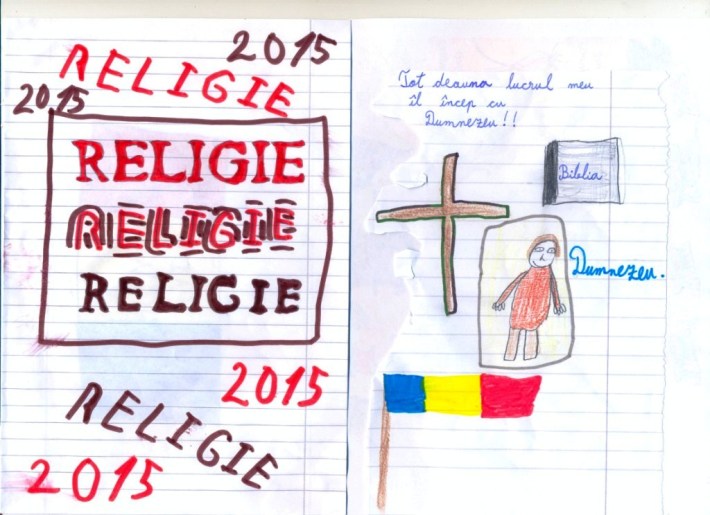 2015
RELIGIE
2015
RELIGIE
RELIGIE
RELIGIE
2015
RELIGIE
2015
Tot deauna lucrul meu
îl încep cu
Dumnezeu!!
Biblia
Dumnezeu.